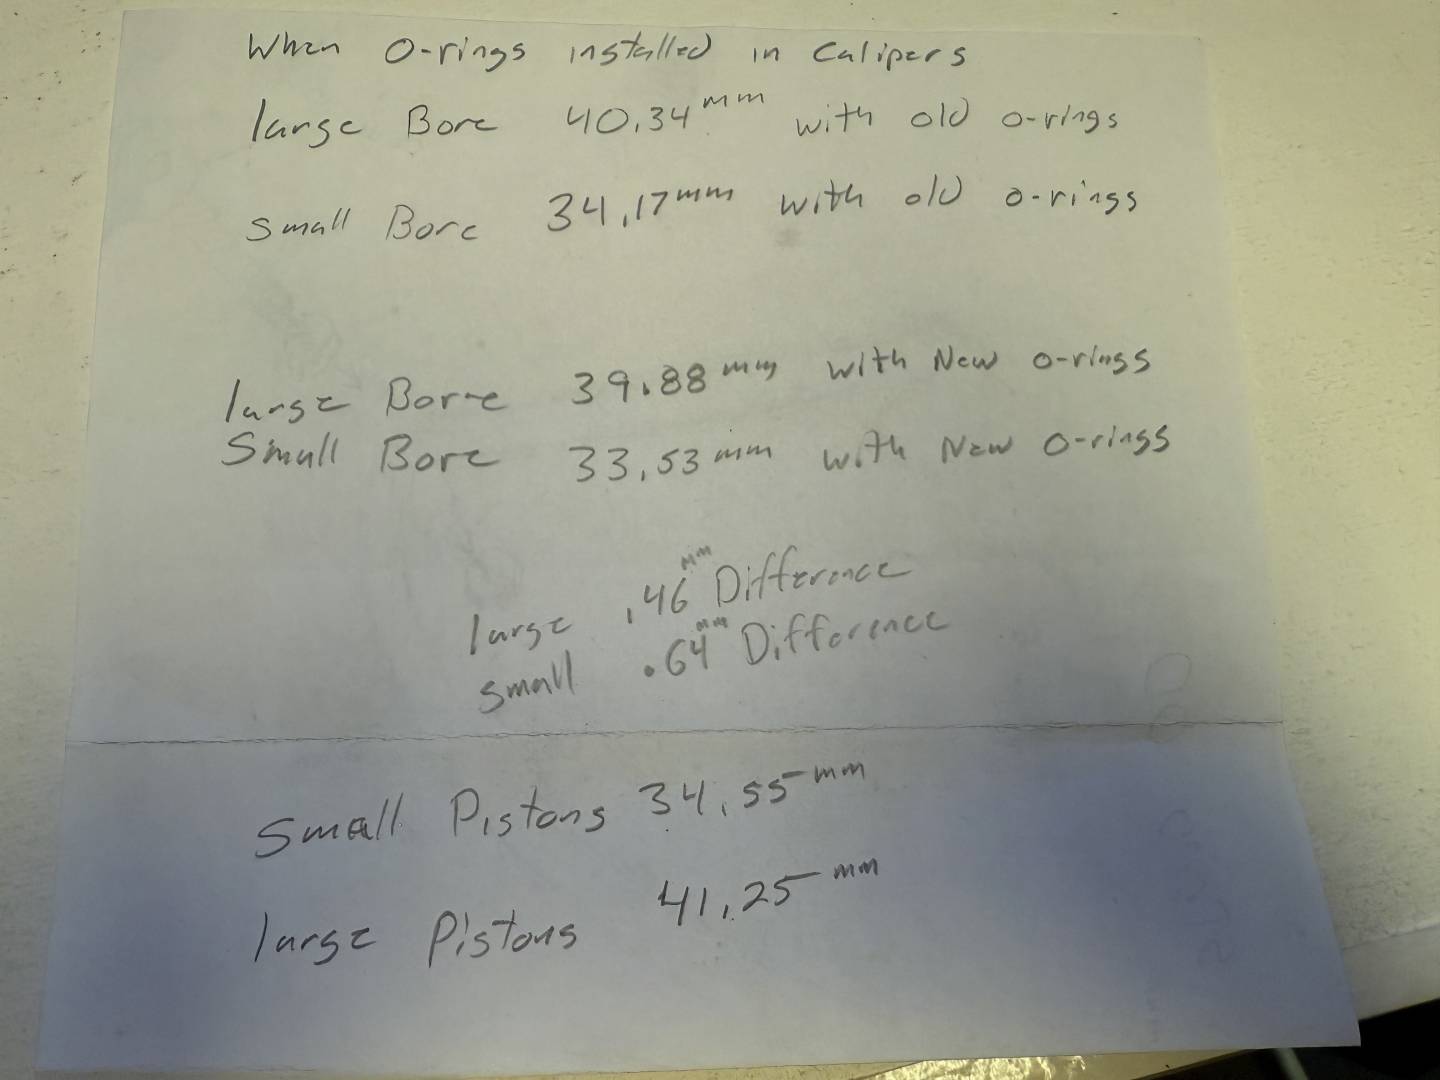 When O-rings installed in Calipers
large Bore 40.34mm with old o-rings
small Bore 34.17mm with old o-rings
large Bore 39.88mm with New o-rings
Small Bore 33.53mm with New O-rings
large .46mm Difference
small .64mm Difference
Small Pistons 34.55mm
large Pistons 41.25mm